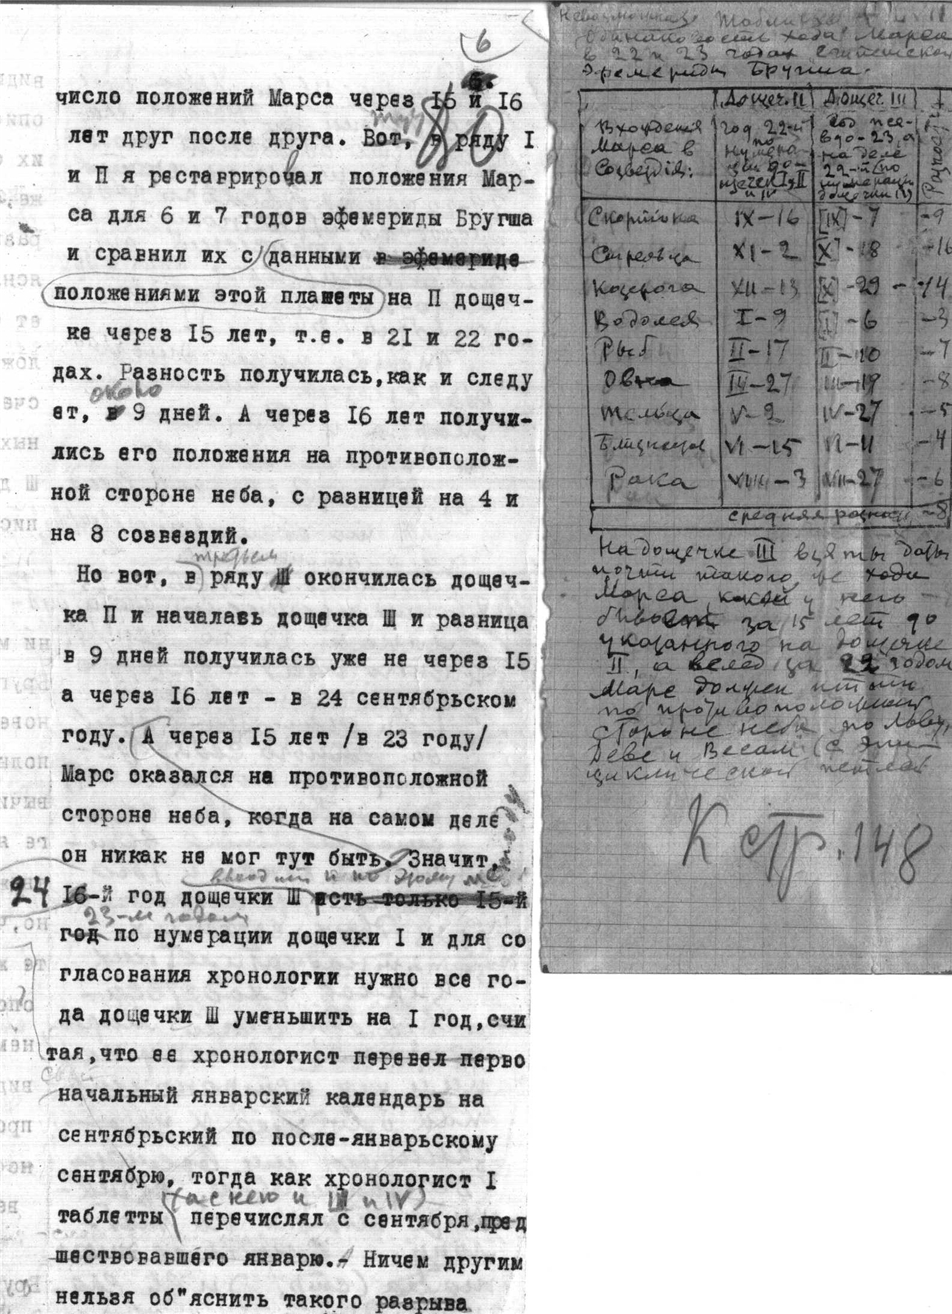 6
число положений Марса через 15 и 16
лет друг после друга. Вот, в ряду I
и П я реставрировал положения Мар-
са для 6 и 7 годов эфемериды Бругша
и сравнил их с данными в эфемериде
положениями этой планеты на П дощеч-
ке через 15 лет, т.е. в 21 и 22 го-
дах. Разность получилась,как и следу
около
ет, в 9 дней. А через 16 лет получи-
лись его положения на противополож-
ной стороне неба, с разницей на 4 и
на 8 созвездий.
третьем
Но вот, в ряду Ш окончилась дощеч-
ка П и началавь дощечка Щ и разница
в 9 дней получилась уже не через 15
а через 16 лет - в 24 сентябрьском
году. А через 15 лет /в 23 году/
Марс оказался на противоположной
стороне неба, когда на самом деле
он никак не мог тут быть. Значит,
24 16-й год дощечки Ш есть только 15-й
23-м годом
год по нумерации дощечки I и для со
гласования хронологии нужно все го-
да дощечки Ш уменьшить на I год,счи
тая,что ее хронологист перевел перво
начальный январский календарь на
сентябрьский по после-январьскому
сентябрю, тогда как хронологист I
(а с нею и III и IV)
таблетты перечислял с сентября,пред
шествовавшего январю.- Ничем другим
нельзя об"яснить такого разрыва
Невозможная
хода Марса
в 22 и 23 годах
Эфемериды Бругша.
Дощеч. II Дощеч. III
Вхождения Марса в Созвездия:
Скорпиона IX-16 [IX]-7 -9
Стрельца XI-2 [X]-18
Козерога XII-13 [X]-29 -14
Водолея I-9 [I]-6 -3
Рыб II-17 II-10 -7
Овна III-27 III-19 -8
Тельца V-2 IV-27 -5
Близнецов VI-15 VI-11 -4
Рака VIII-3 VII-27 -6
средняя разность -8
На дощечке III взяты даты
почти такого же хода
Марса, какой у него
бывает за 15 лет до
указанного на дощечке
II, а вслед за 22 годом
Марс должен идти
по противоположной
стороне неба по Льву,
Деве и Весам (с эпи-
циклической петлей
К стр. 148